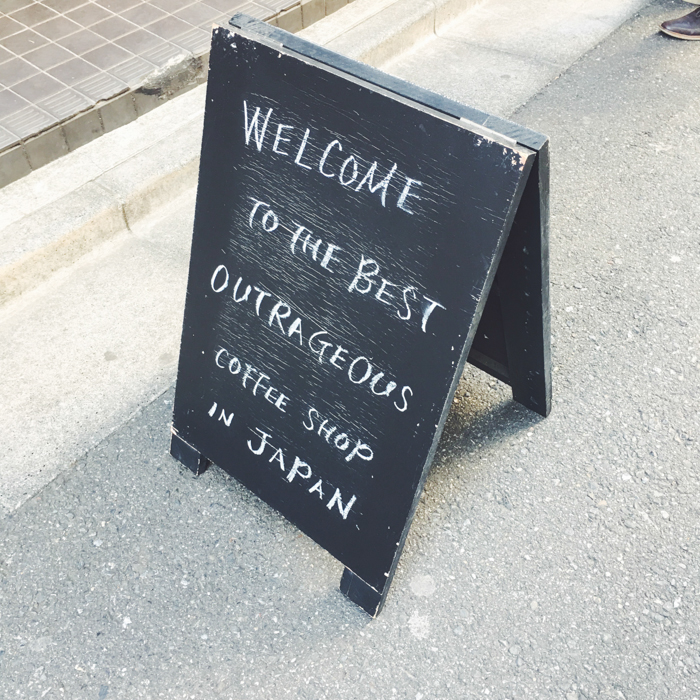 WELCOME
TO THE BEST
OUTRAGEOUS
COFFEE SHOP
IN JAPAN